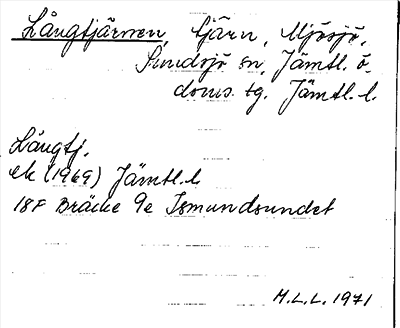 Långtjärnen, tjärn, Mjösjö,
Sundsjö sn, Jämtl. ö.
doms. tg. Jämtl. l.
Långtj.
ek (1969) Jämtl. l.
18F Bräcke 9e Ismundsundet
M.L.L. 1971